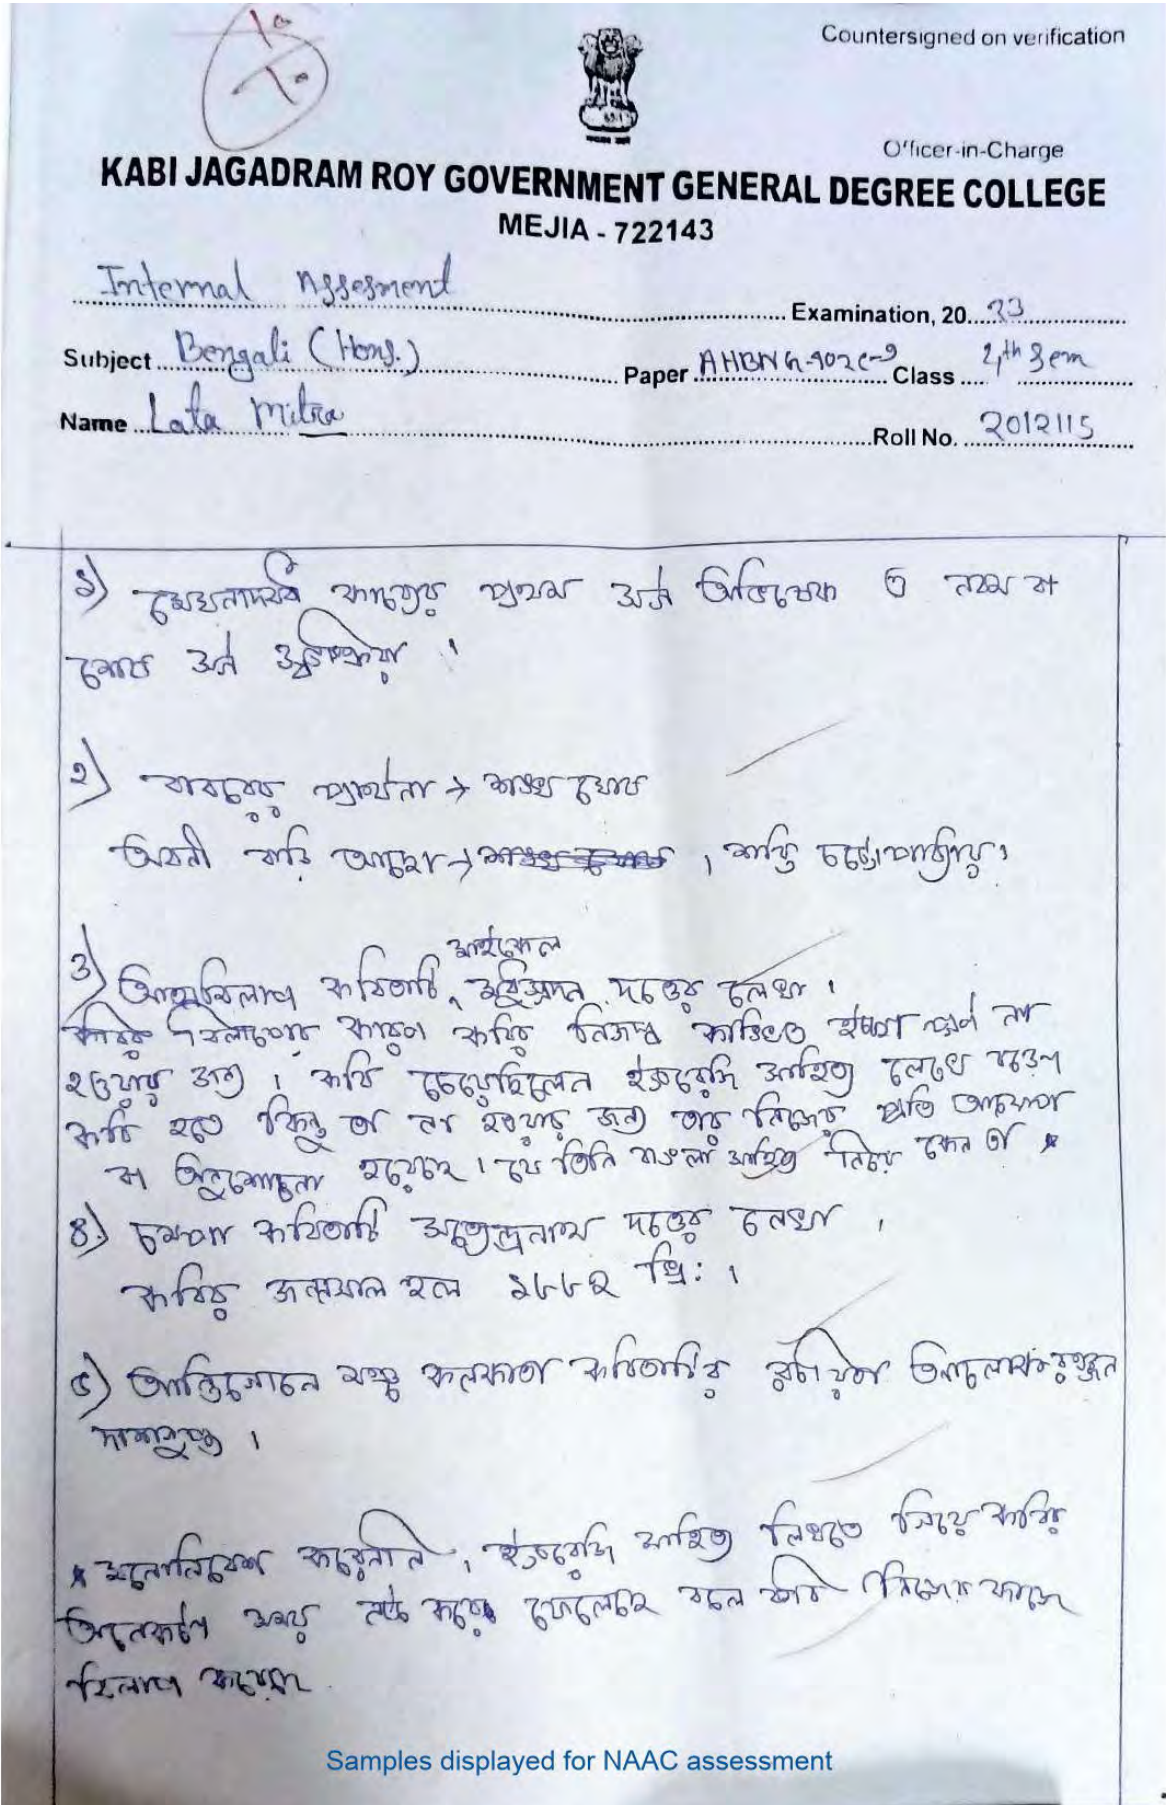 10
10
Countersigned on verification
Officer-in-Charge
KABI JAGADRAM ROY GOVERNMENT GENERAL DEGREE COLLEGE
MEJIA - 722143
Internal Assesment Examination, 20 23
Subject Bengali (Hons.) Paper Class 4th Sem
Name Lata Mitra Roll No. 2012115
১) মেঘনাদবধ কাব্যের প্রথম সর্গ অভিষেক ও নবম বা
শেষ সর্গ সংস্ক্রিয়া ।
২) বাবরের প্রার্থনা → শঙ্খ ঘোষ
অবনী বাড়ি আছো → , শক্তি চট্টোপাধ্যায় ।
মাইকেল
3) আত্মবিলাপ কবিতাটি মধুসূদন দত্তের লেখা ।
কবির বিলাপের কারণ কবির নিজস্ব কাঙ্খিত ইচ্ছা পূর্ণ না
হওয়ার জন্য । কবি চেয়েছিলেন ইংরেজি সাহিত্য লেখে বড়ো
কবি হতে কিন্তু তা না হওয়ার জন্য তার নিজের প্রতি আক্ষেপ
বা অনুশোচনা হয়েছে । যে তিনি বাংলা সাহিত্য নিয়ে কেন তা *
8) চম্পা কবিতাটি সত্যেন্দ্রনাথ দত্তের লেখা ।
কবির জন্মসাল হল ১৮৮২ খ্রি: ।
৫) শান্তিগোলে কলকাতা কবিতাটির রচয়িতা অলোকরঞ্জন
দাশগুপ্ত ।
* মনোনিবেশ করেননি । ইংরেজি সাহিত্য লিখতে গিয়ে কবির
অনেকটা সময় নষ্ট করে ফেলেছে বলে কবি নিজের কাছে
বিলাপ করেছে
Samples displayed for NAAC assessment